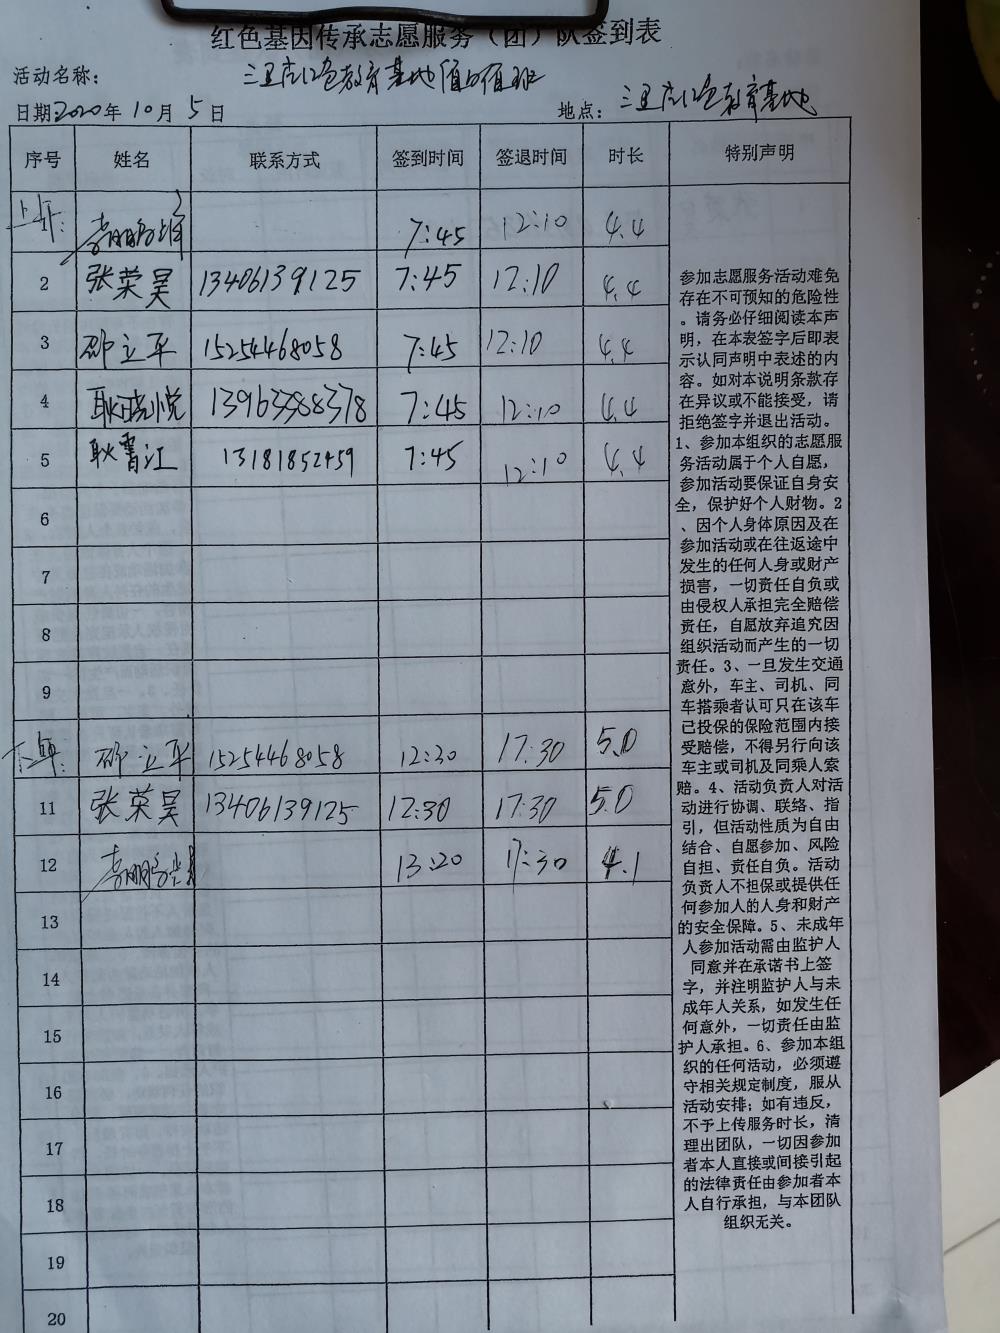 红色基因传承志愿服务（团）队签到表
活动名称： 红色教育基地值班
日期：2020年10月5日 地点： 红色教育基地
序号 姓名 联系方式 签到时间 签退时间 时长 特别声明
上午：
1 7:45 12:10 4.4
2 张荣昊 13406139125 7:45 12:10 4.4
3 邵立平 15254468058 7:45 12:10 4.4
4 耿 悦 13963388378 7:45 12:10 4.4
5 耿 江 13181852459 7:45 12:10 4.4
6
7
8
9
下午： 邵立平 15254468058 12:30 17:30 5.0
11 张荣昊 13406139125 12:30 17:30 5.0
12 13:20 17:30 4.1
13
14
15
16
17
18
19
20
参加志愿服务活动难免
存在不可预知的危险性
。请务必仔细阅读本声
明，在本表签字后即表
示认同声明中表述的内
容。如对本说明条款存
在异议或不能接受，请
拒绝签字并退出活动。
1、参加本组织的志愿服
务活动属于个人自愿，
参加活动要保证自身安
全，保护好个人财物。2
、因个人身体原因及在
参加活动或在往返途中
发生的任何人身或财产
损害，一切责任自负或
由侵权人承担完全赔偿
责任，自愿放弃追究因
组织活动而产生的一切
责任。3、一旦发生交通
意外，车主、司机、同
车搭乘者认可只在该车
已投保的保险范围内接
受赔偿，不得另行向该
车主或司机及同乘人索
赔。4、活动负责人对活
动进行协调、联络、指
引，但活动性质为自由
结合、自愿参加、风险
自担、责任自负。活动
负责人不担保或提供任
何参加人的人身和财产
的安全保障。5、未成年
人参加活动需由监护人
同意并在承诺书上签
字，并注明监护人与未
成年人关系，如发生任
何意外，一切责任由监
护人承担。6、参加本组
织的任何活动，必须遵
守相关规定制度，服从
活动安排；如有违反，
不予上传服务时长，清
理出团队，一切因参加
者本人直接或间接引起
的法律责任由参加者本
人自行承担，与本团队
组织无关。